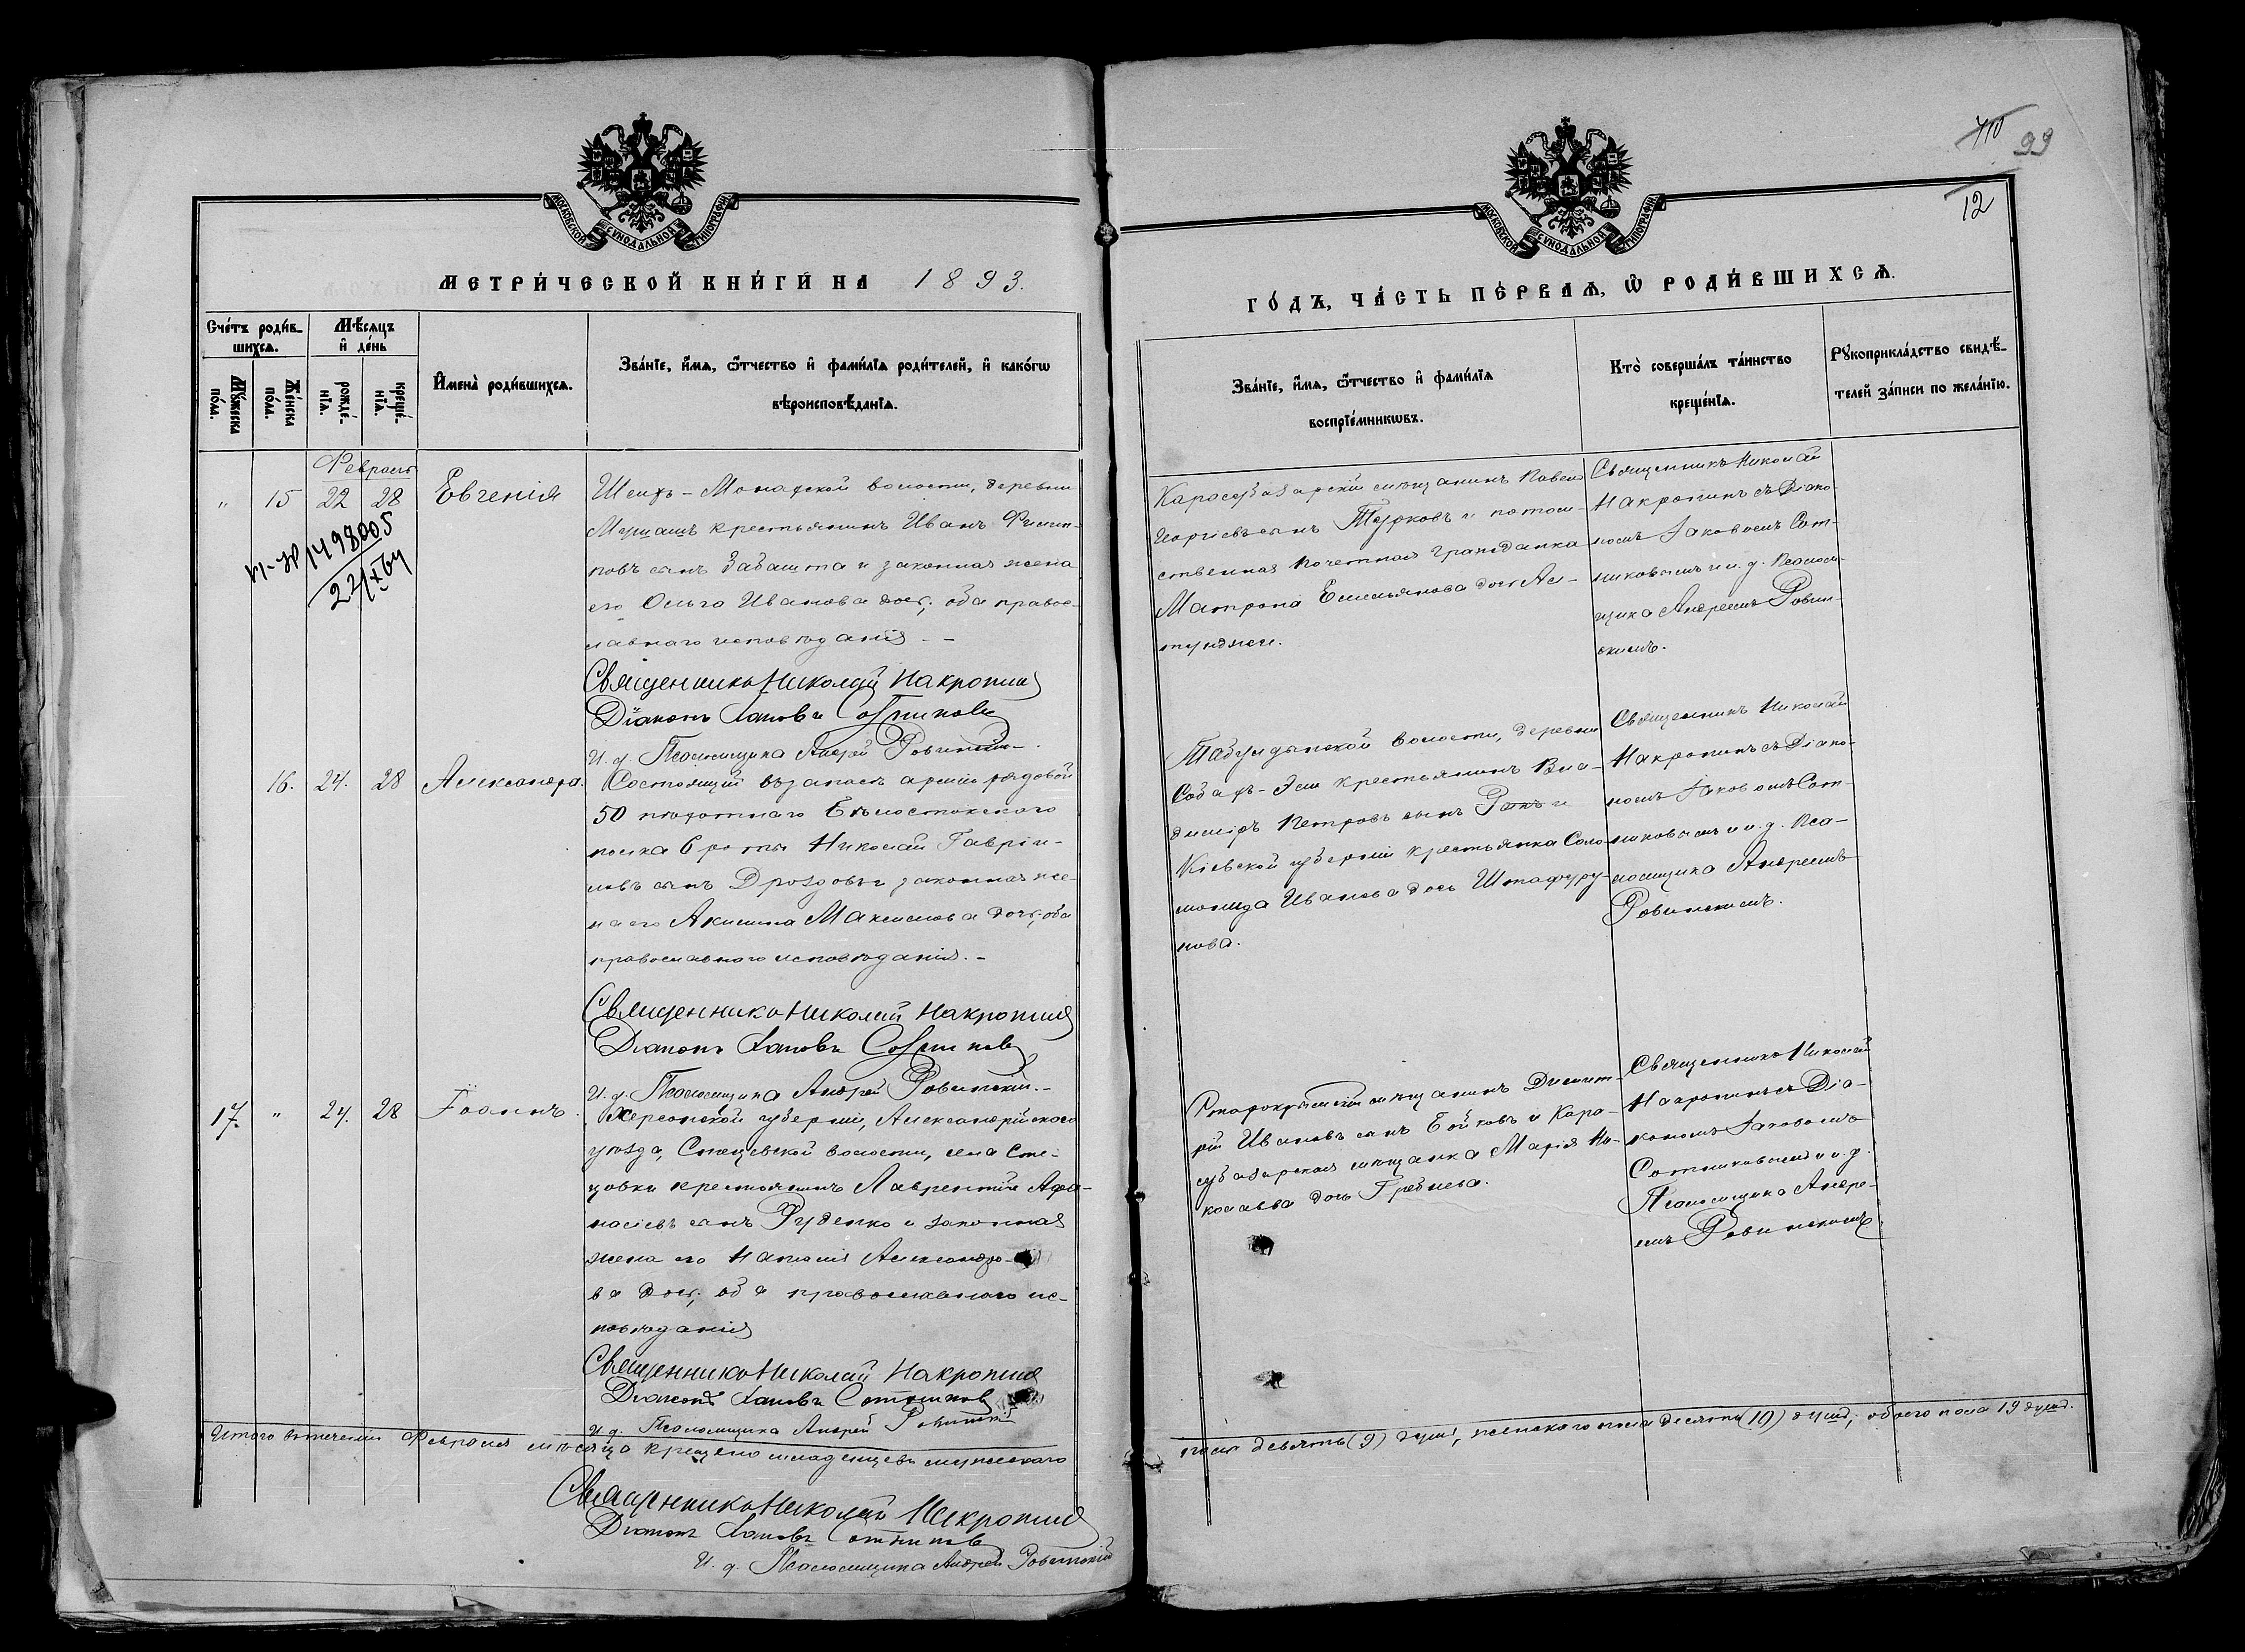 МОСКОВСКОЙ СѴНОДАЛЬНОЙ ТИПОГРАФІИ
МЕТРИ́ЧЕСКОЙ КНИ́ГИ НА 1893.
Сче́тъ роди́в-
шихсѧ.
Мꙋ́жеска по́ла.
Же́нска по́ла.
Мѣ́сѧцъ
и҆ де́нь
рожде́-
нїѧ.
креще́-
нїѧ.
И҆мена̀ роди́вшихсѧ.
Зва́нїе, и҆́мѧ, ѻ҆́тчество и҆ фами́лїѧ роди́телей, и҆ како́гѡ
вѣроисповѣ́данїѧ.
Февраль
" 15 22 28 Евгенія
1498005
22/XI 64
Шейхъ-Монахской волости, деревни
крестьянинъ Иванъ Филип-
повъ сынъ Забашта и законная жена
его Ольга Иванова дочь, оба правос-
лавнаго исповѣданія. –
Священникъ Николай Накропинъ
Діаконъ Іаковъ Сотниковъ
И. д. Псаломщика Андрей Ровинскій.
16. 24. 28 Александра.
Состоящій въ запасѣ арміи рядовой
50 пѣхотнаго Бѣлостокскаго
полка 6 роты Николай Гавріи-
ловъ сынъ Дроздовъ и законная же-
на его Акилина Максимова дочь, оба
православнаго исповѣданія. –
Священникъ Николай Накропинъ
Діаконъ Іаковъ Сотниковъ
И. д. Псаломщика Андрей Ровинскій. –
17. " 24. 28 Іоаннъ.
Херсонской губерніи, Александрійскаго
уѣзда, Стецевской волости, села Сте-
цовки крестьянинъ Лаврентій Афа-
насіевъ сынъ Руденко и законная
жена его Наталія Александро-
ва дочь, оба православнаго ис-
повѣданія
Священникъ Николай Накропинъ
Діаконъ Іаковъ Сотниковъ
И. д. Псаломщика Андрей Ровинскій
Итого въ теченіи Февраля мѣсяца крещено младенцевъ мужескаго
Священникъ Николай Накропинъ
Діаконъ Іаковъ Сотниковъ
И. д. Псаломщика Андрей Ровинскій
99
12
МОСКОВСКОЙ СѴНОДАЛЬНОЙ ТИПОГРАФІИ
ГО́ДЪ, ЧА́СТЬ ПЕ́РВАѦ, Ѡ҆ РОДИ́ВШИХСѦ.
Зва́нїе, и҆́мѧ, ѻ҆́тчество и҆ фами́лїѧ
воспрїе́мникѡвъ.
Кто̀ соверша́лъ та́инство
креще́нїѧ.
Рꙋкоприкла́дство свидѣ́-
телей за́писи по жела́нїю.
Карасубазарскій мѣщанинъ Павелъ
Георгіевъ сынъ Турковъ и потом-
ственная почетная гражданка
Матрона Емельянова дочь
Священникъ Николай
Накропинъ съ Діако-
номъ Іаковомъ Сот-
никовымъ и и. д. Псалом-
щика Андреемъ Ровин-
скимъ.
Табулдынской волости, деревни
Сарабъ- крестьянинъ Вла-
диміръ Петровъ сынъ и
Кіевской губерніи крестьянка Соло-
монида Иванова дочь
нова.
Священникъ Николай
Накропинъ съ Діако-
номъ Іаковомъ Сот-
никовымъ и и. д. Пса-
ломщика Андреемъ
Ровинскимъ.
Старокрымскій мѣщанинъ Димит-
рій Ивановъ сынъ Бойковъ и Кара-
субазарская мѣщанка Марія Ни-
колаева дочь Гребнева.
Священникъ Николай
Накропинъ съ Діа-
кономъ Іаковомъ
Сотниковымъ и и. д.
Псаломщика Андре-
емъ Ровинскимъ.
пола девять (9) душъ, женскаго пола десять (10) душъ, обоего пола 19 душъ.